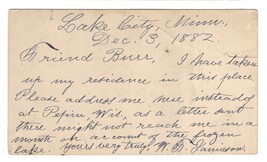 Lake City, Minn,
Dec. 3, 1882.
Friend Burr, I have taken
up my residence in this place
Please address me here instead of
Pepin Wis, as a letter sent
there might not reach me in a
month on account of the frozen
lake. Yours very truly, W. D.